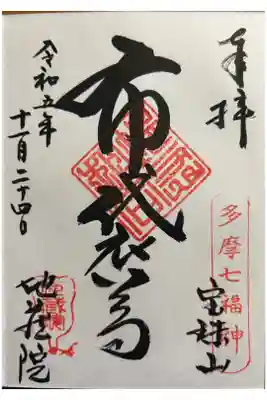 奉拝
多摩七福神
宝珠山
布袋尊
令和五年
十一月二十四日
地蔵院